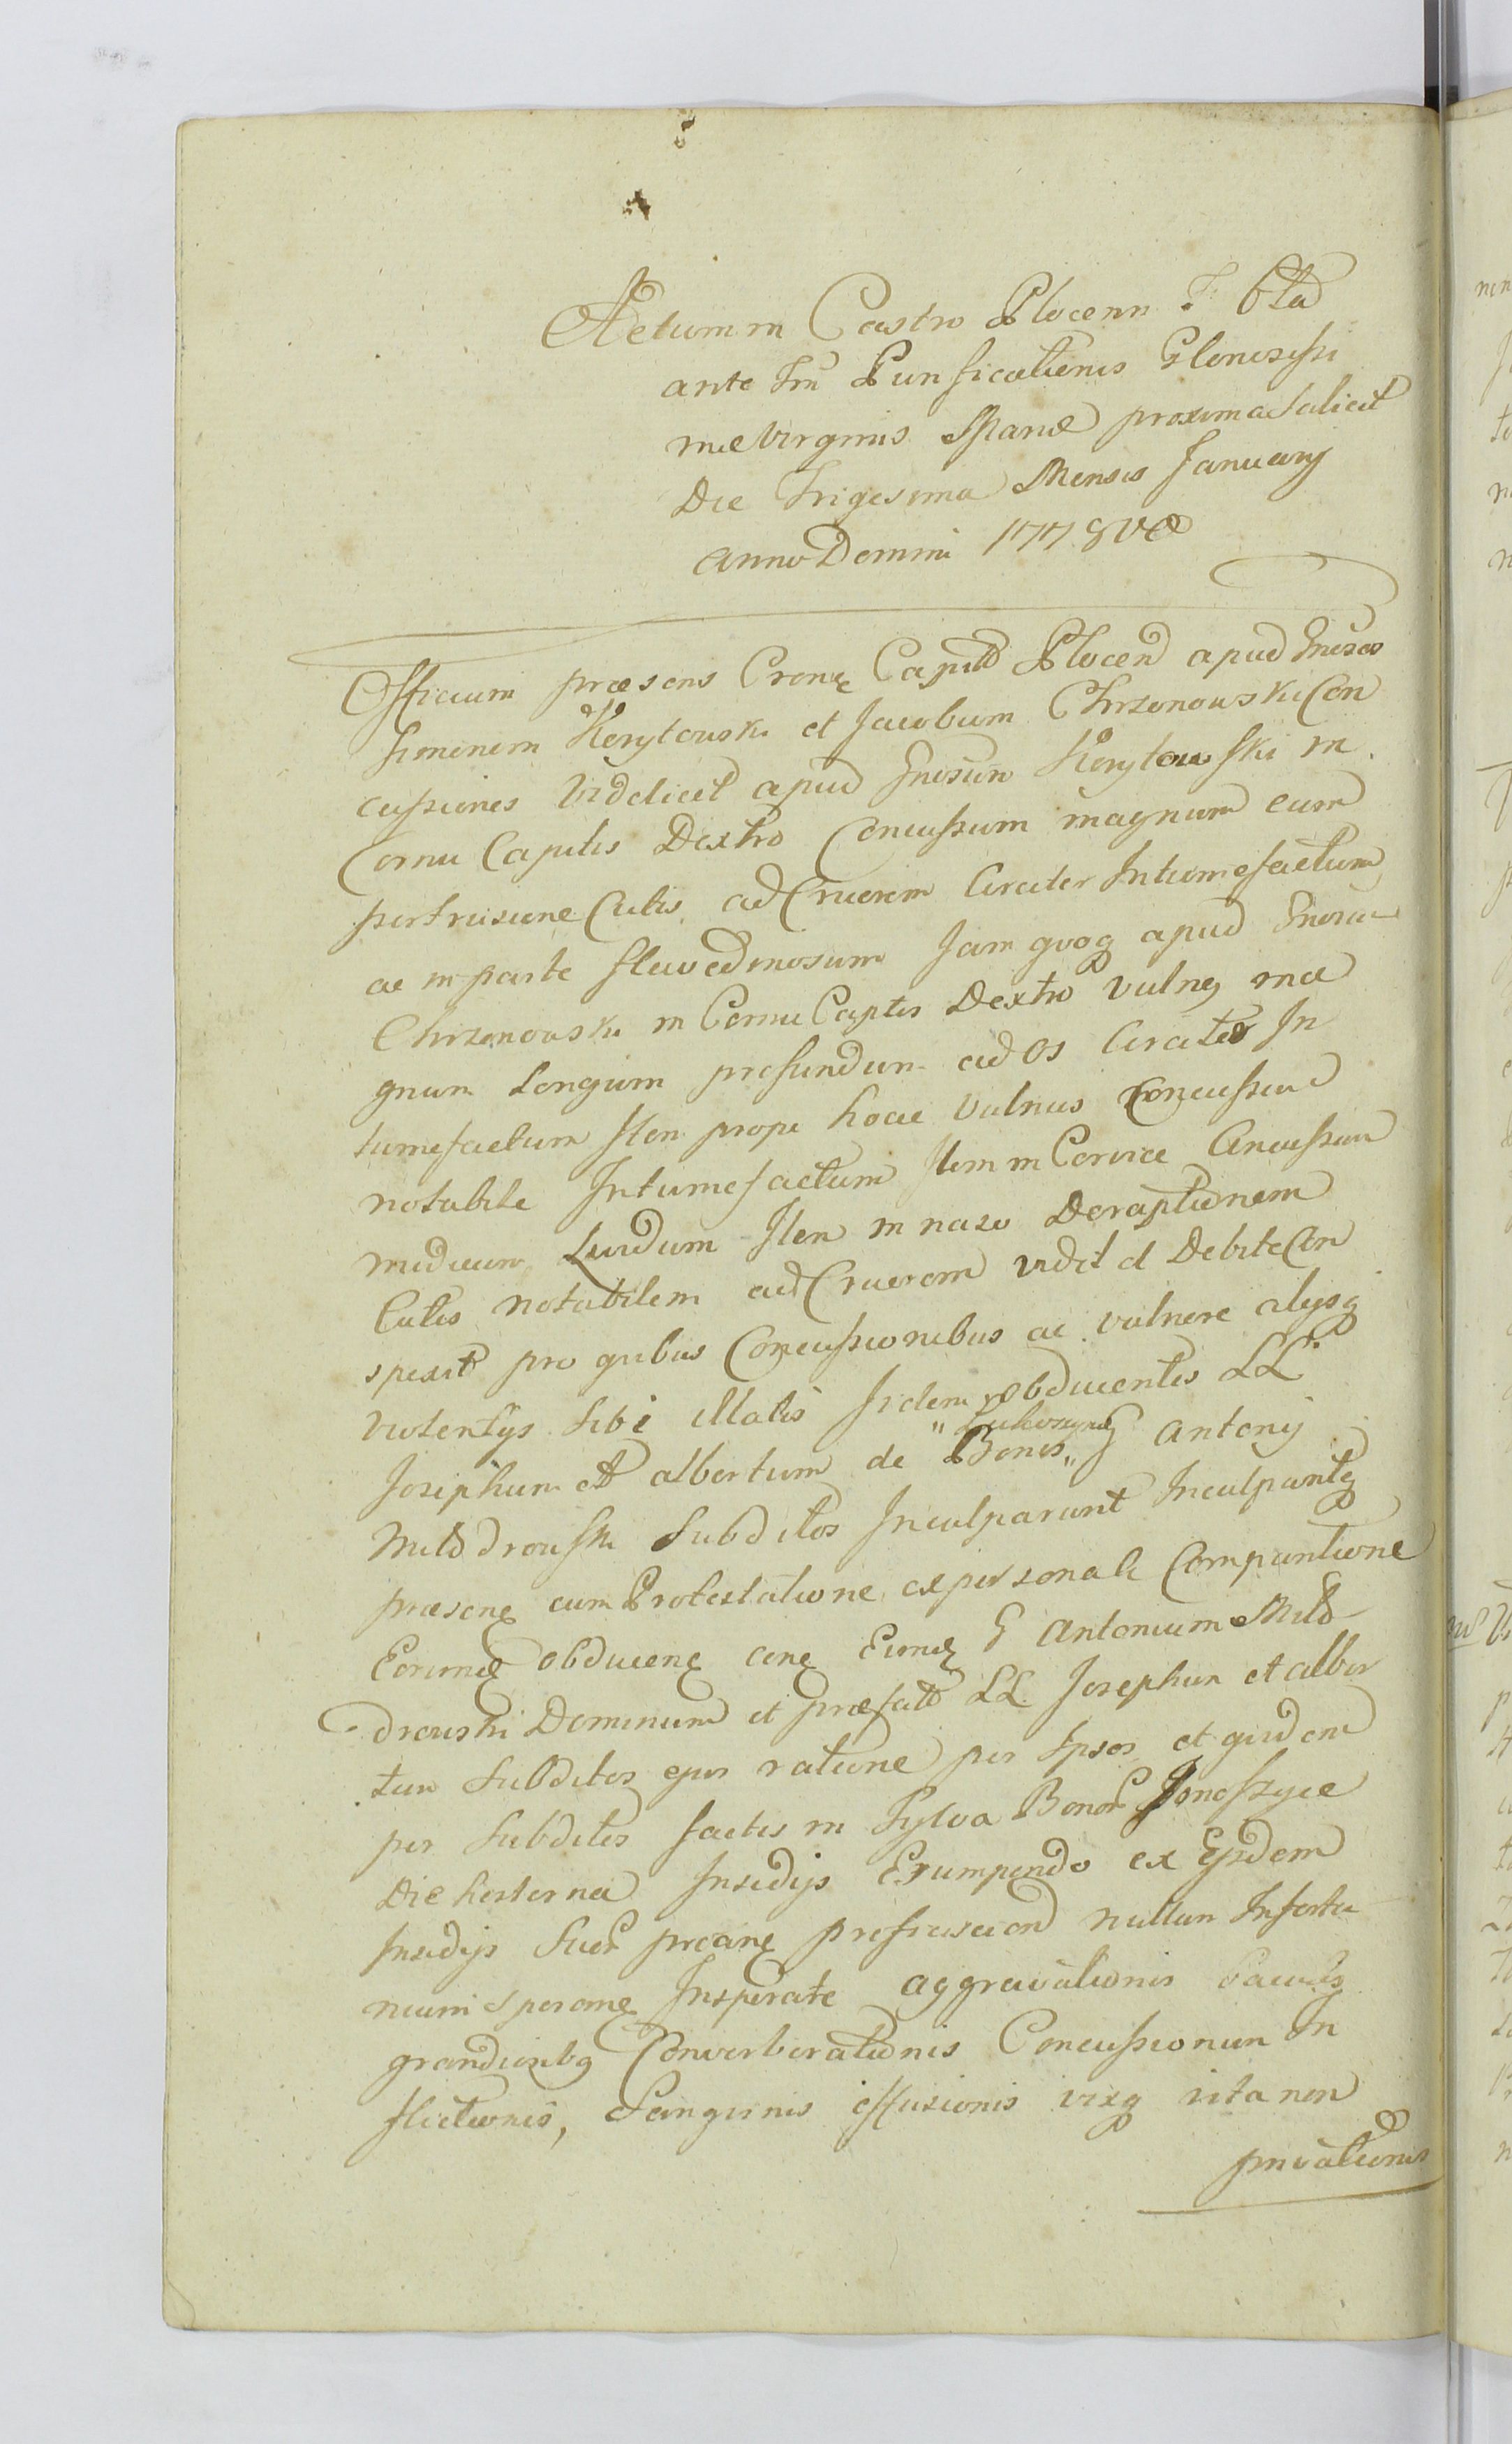 Actum in Castro Plocenn F. 6ta
ante Fm Purificationis Gloriosissi
mae Virginis Mariae proxima scilicet
Die Trigesima Mensis January
Anno Domini 1778vo
Officium praesens Crone Capitt Plocen apud Gnrosos
Simonem Korytowski et Jacobum Chrzonowski Con
cussiones Videlicet apud Gnrosum Korytowski in
Cornu Capitis Dextro Concussum magnum cum
pertrusione Cutis ad Cruorem Circiter Intumefactum
ac in parte flavedinosum Jam quoq apud Gnrosum
Chrzonowski in Cornu Captis Dextro Vulnq ma
gnum Longum profundum ad Os Circiter In
tumefactum Item prope hocce Vulnus Concussum
notabile Intumefactum Item in Cervice Concussum
modicum Lividum Item in naso Deraptionem
Cutis notabilem ad Cruorem vidit et Debite Con
spexit pro quibus Concussionibus ac vulnere alijsq
violentijs sibi illatis Iidem obducentes LL.
Josephum et Albertum de Bonis „ „ G Antonij
Mildrowski Subditos Inculparunt Inculpantq
praesenq cum Protestatione ac personali Comparitione
Eorundq obducenq conq Eundq G Antonium Mild
drowski Dominum et praefatt LL. Josephum et Alber
tum Subditos ejus ratione per Ipsos et quidem
per Subditos factis in Sylva Bonor Jonoszyce
Die hesterna Insidijs Erumpendo ex Ejsdem
Insidijs Suor preanq proficiscen nullum Infortu
nium Speranq Insperate aggravationis baculis
grandioribq Converberationis Concussionum In
flictionis, Sanguinis effusionis vixq vita non
privationis